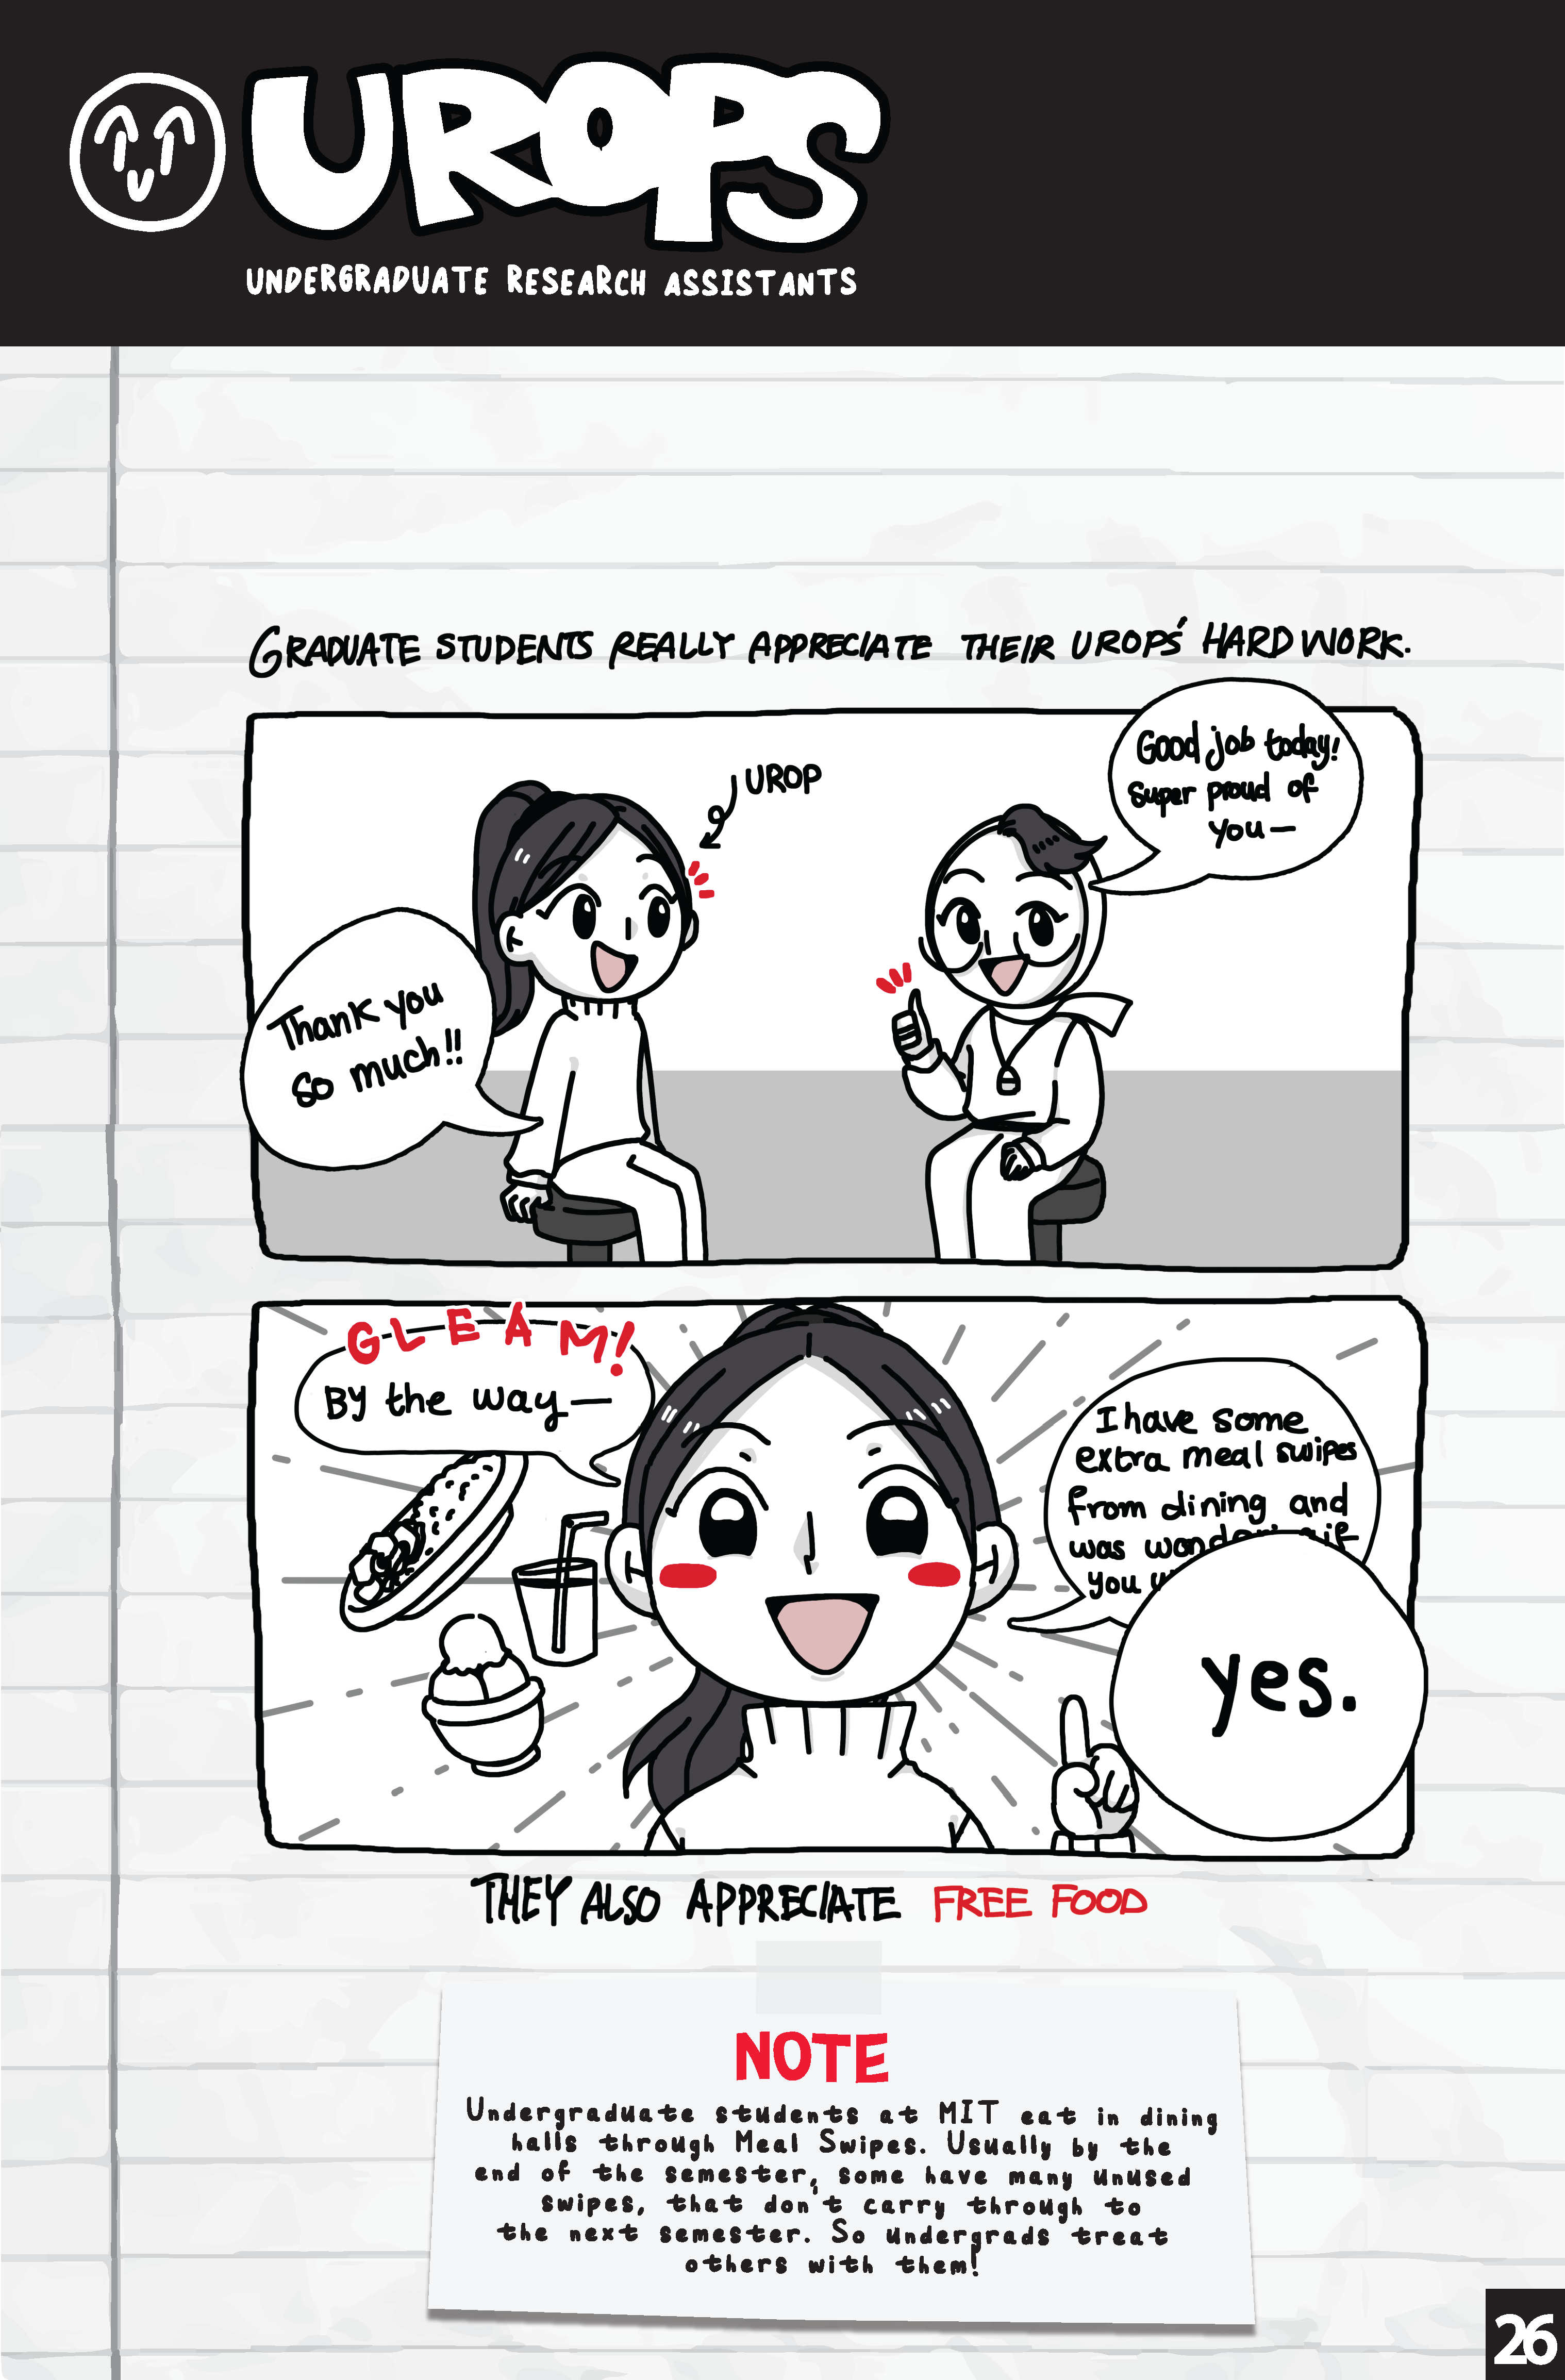 UROPS
UNDERGRADUATE RESEARCH ASSISTANTS
GRADUATE STUDENTS REALLY APPRECIATE THEIR UROPS' HARD WORK.
Good job today!
super proud of
you—
UROP
Thank you
so much!!
GLEAM!
By the way—
I have some
extra meal swipes
from dining and
was if
you
yes.
THEY ALSO APPRECIATE FREE FOOD
NOTE
Undergraduate students at MIT eat in dining
halls through Meal Swipes. Usually by the
end of the semester, some have many unused
swipes, that don't carry through to
the next semester. So undergrads treat
others with them!
26